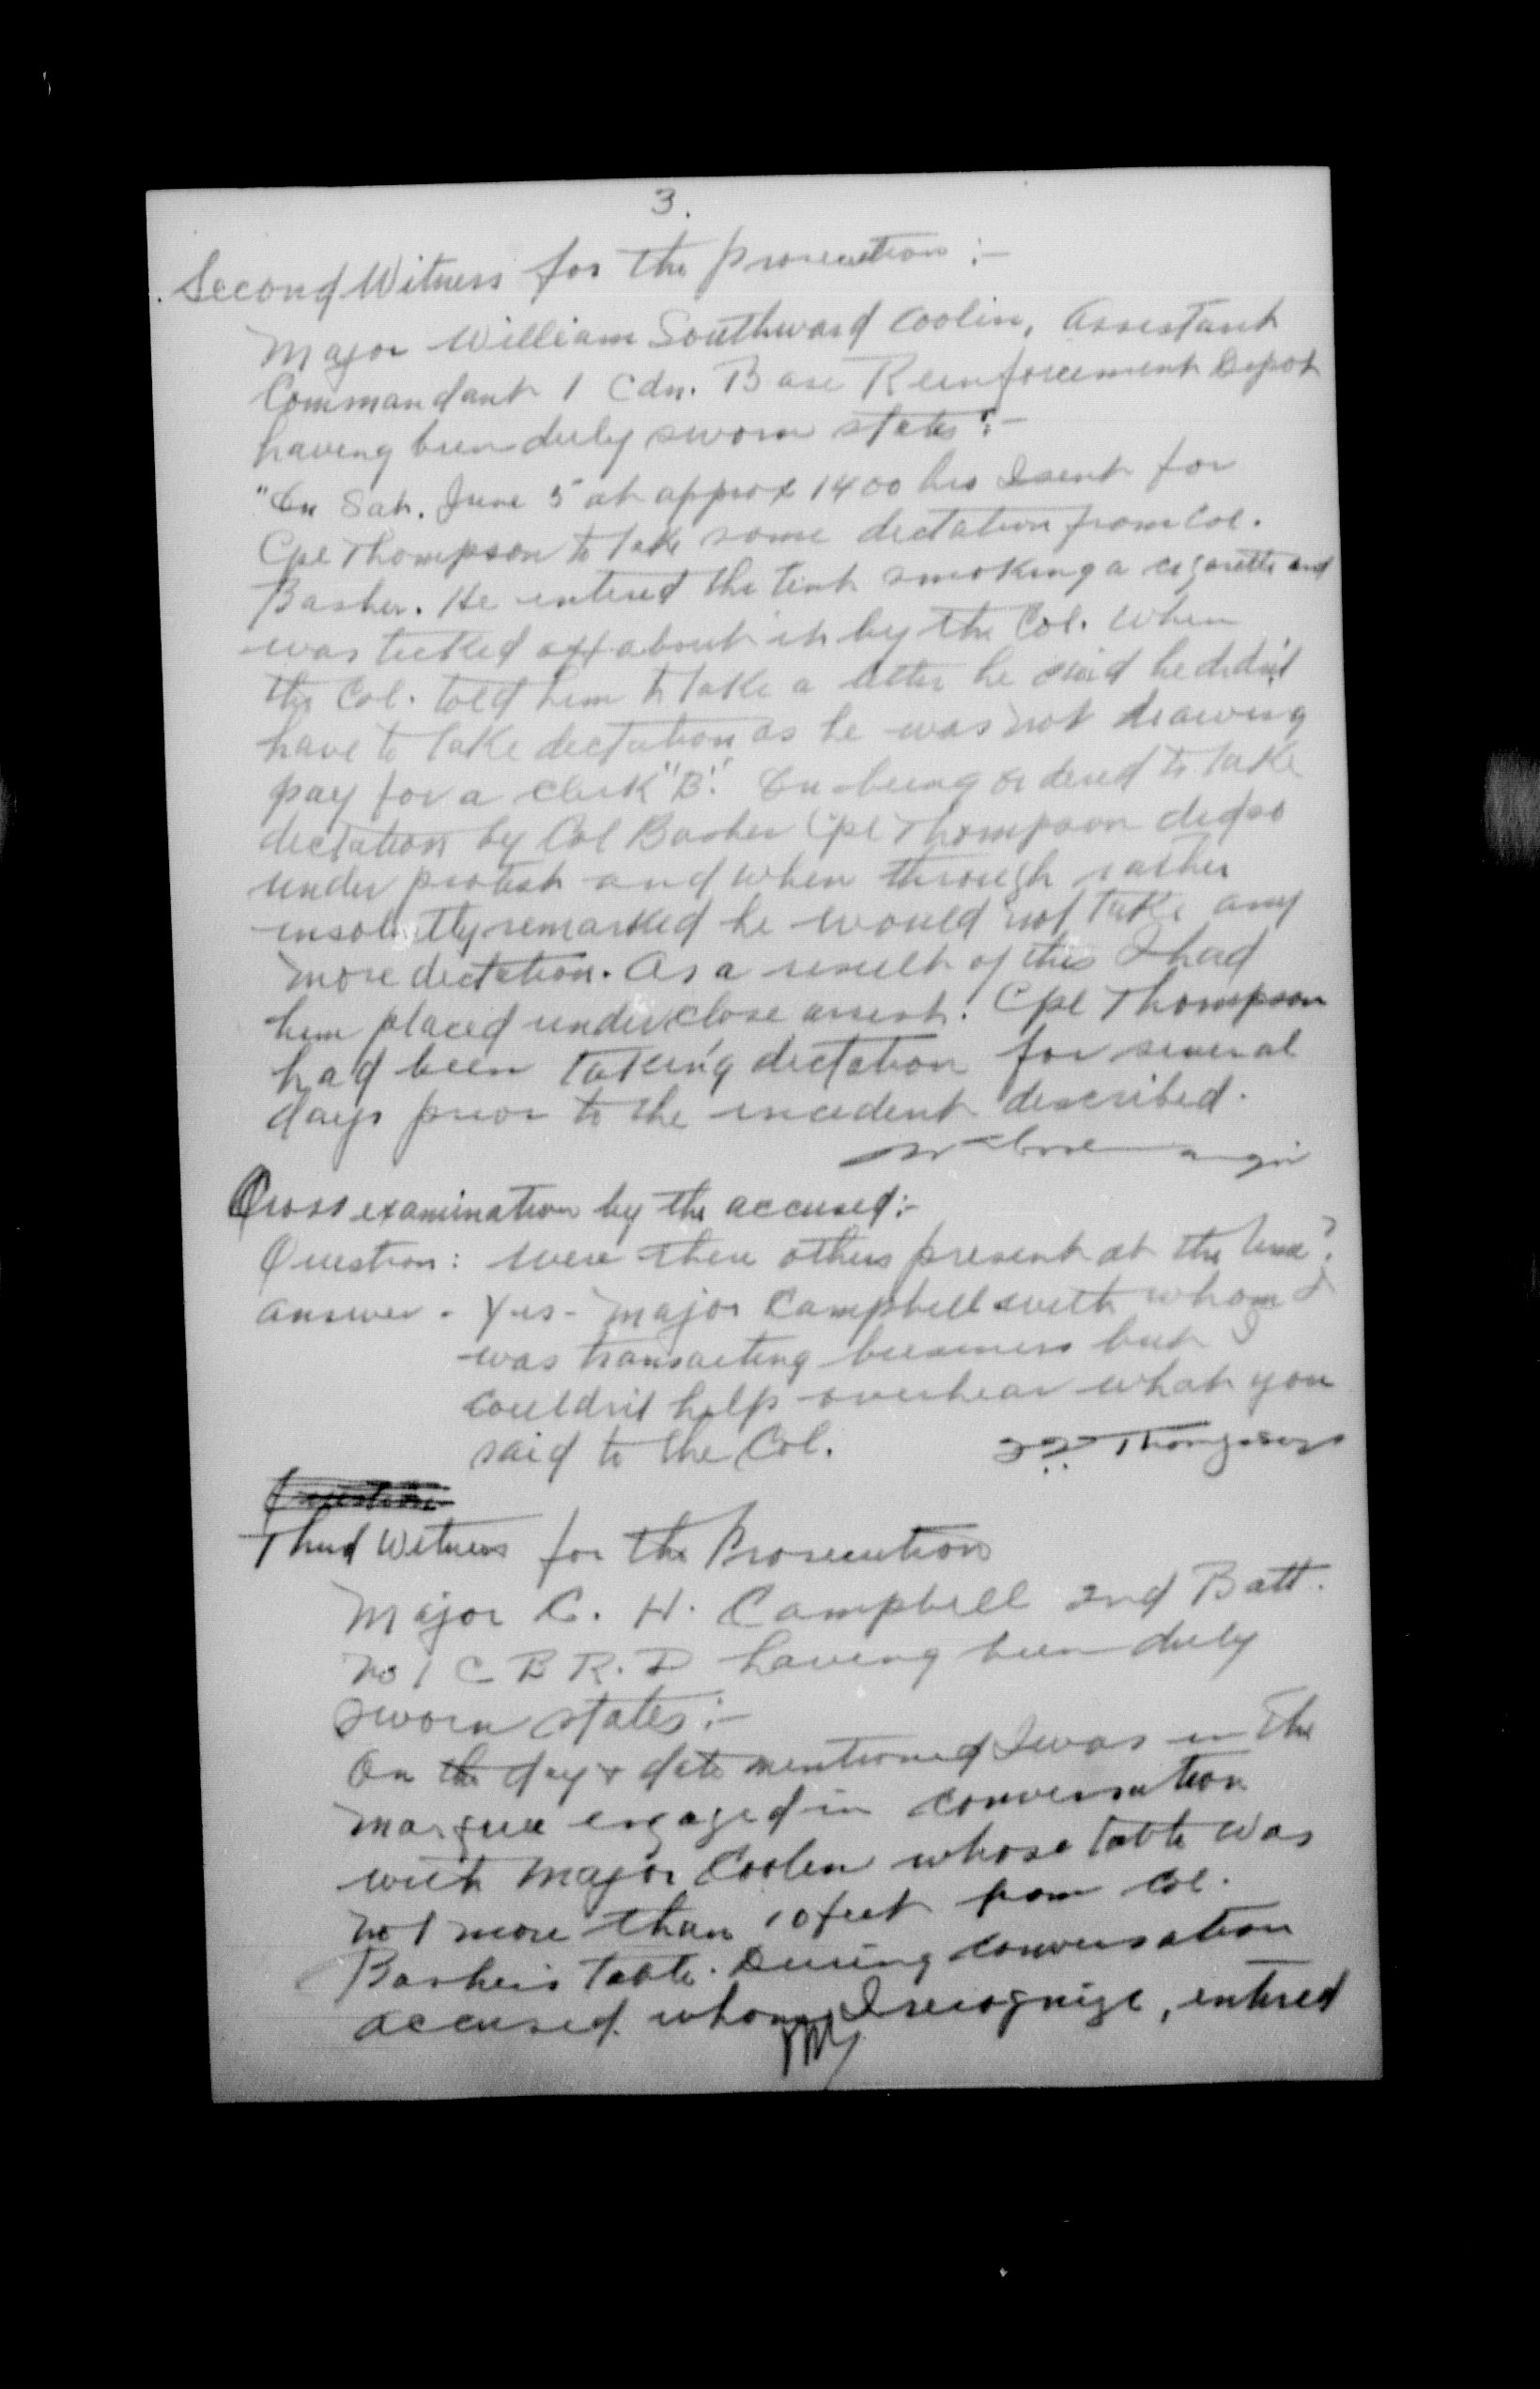 3.
Second Witness for the prosecution :-
Major William Southward Coolin, Assistant
Commandant 1 Cdn. Base Reinforcement Depot
having been duly sworn states :-
"On Sat. June 5 at approx 1400 hrs I sent for
Cpl Thompson to take some dictation from Col.
Basher. He entered the tent smoking a cigarette and
was ticked off about it by the Col. When
the Col. told him to take a letter he said he didn't
have to take dictation as he was not drawing
pay for a clerk "B". On being ordered to take
dictation by Col Basher Cpl Thompson did so
under protest and when through rather
insolently remarked he would not take any
more dictation. As a result of this I had
him placed under close arrest. Cpl Thompson
had been taking dictation for several
days prior to the incident described.
Cross examination by the accused :-
Question: Were there others present at the time?
Answer - Yes - Major Campbell with whom I
was transacting business but I
couldn't help overhear what you
said to the Col. Thompson
Question
Third Witness for the Prosecution
Major C. H. Campbell 2nd Batt.
No 1 C B R. D having been duly
sworn states :-
On the day & date mentioned I was in the
marquee engaged in conversation
with Major Coolin whose table was
not more than 10 feet from Col.
Basher's table. During conversation
accused whom I recognize, entered